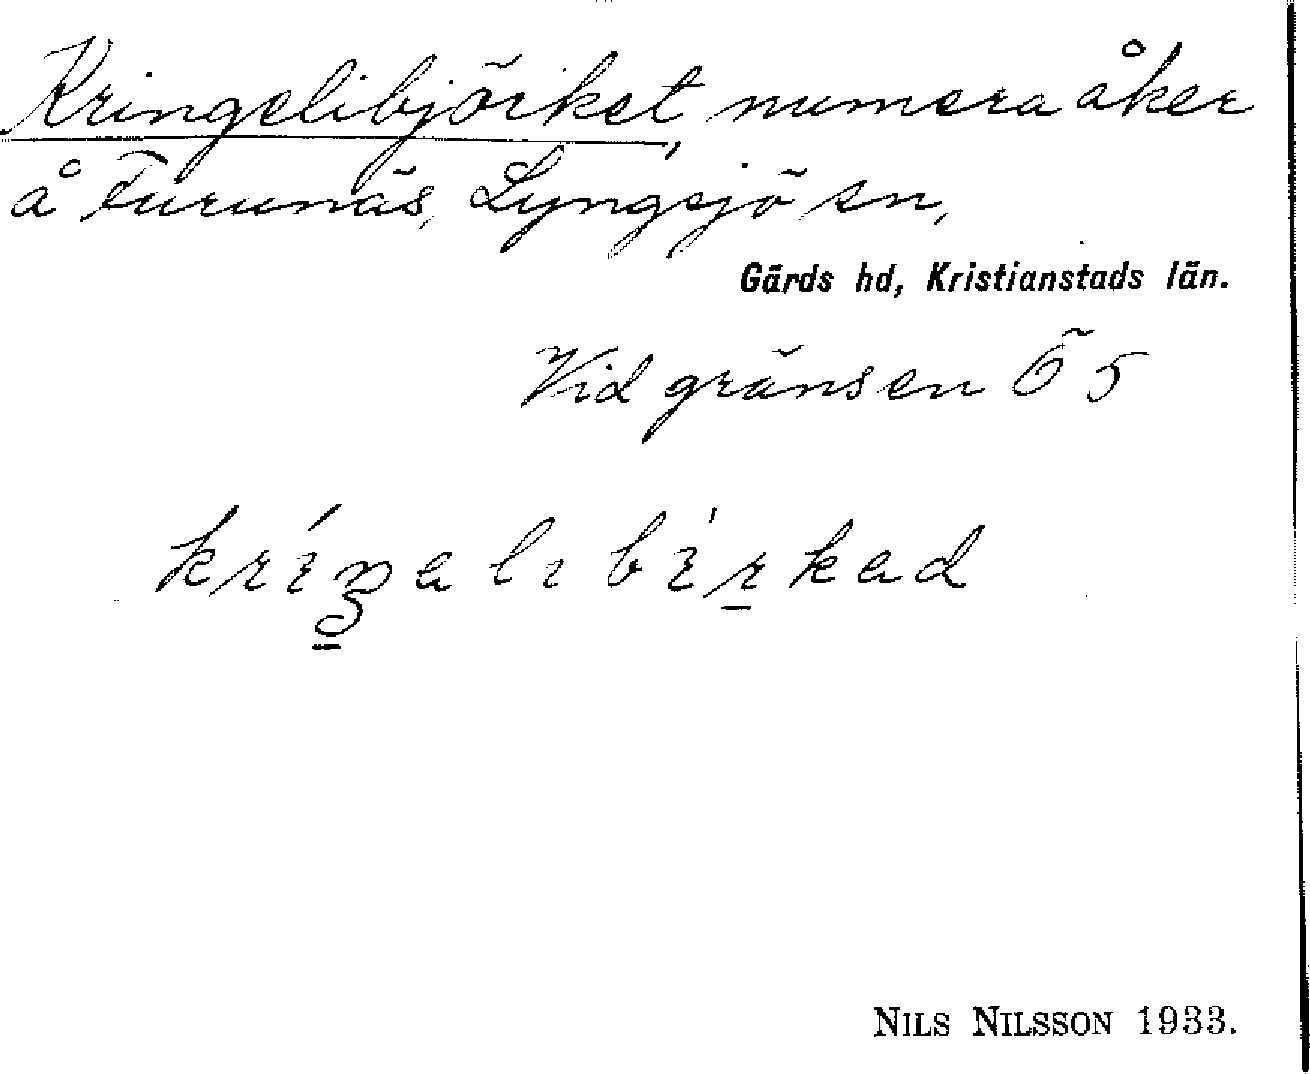 Kringelibjörket, numera åker
å Furunäs, Lyngsjö sn,
Gärds hd, Kristianstads län.
Vid gränsen Ö 5
kríŋalı bìrkad
NILS NILSSON 1933.